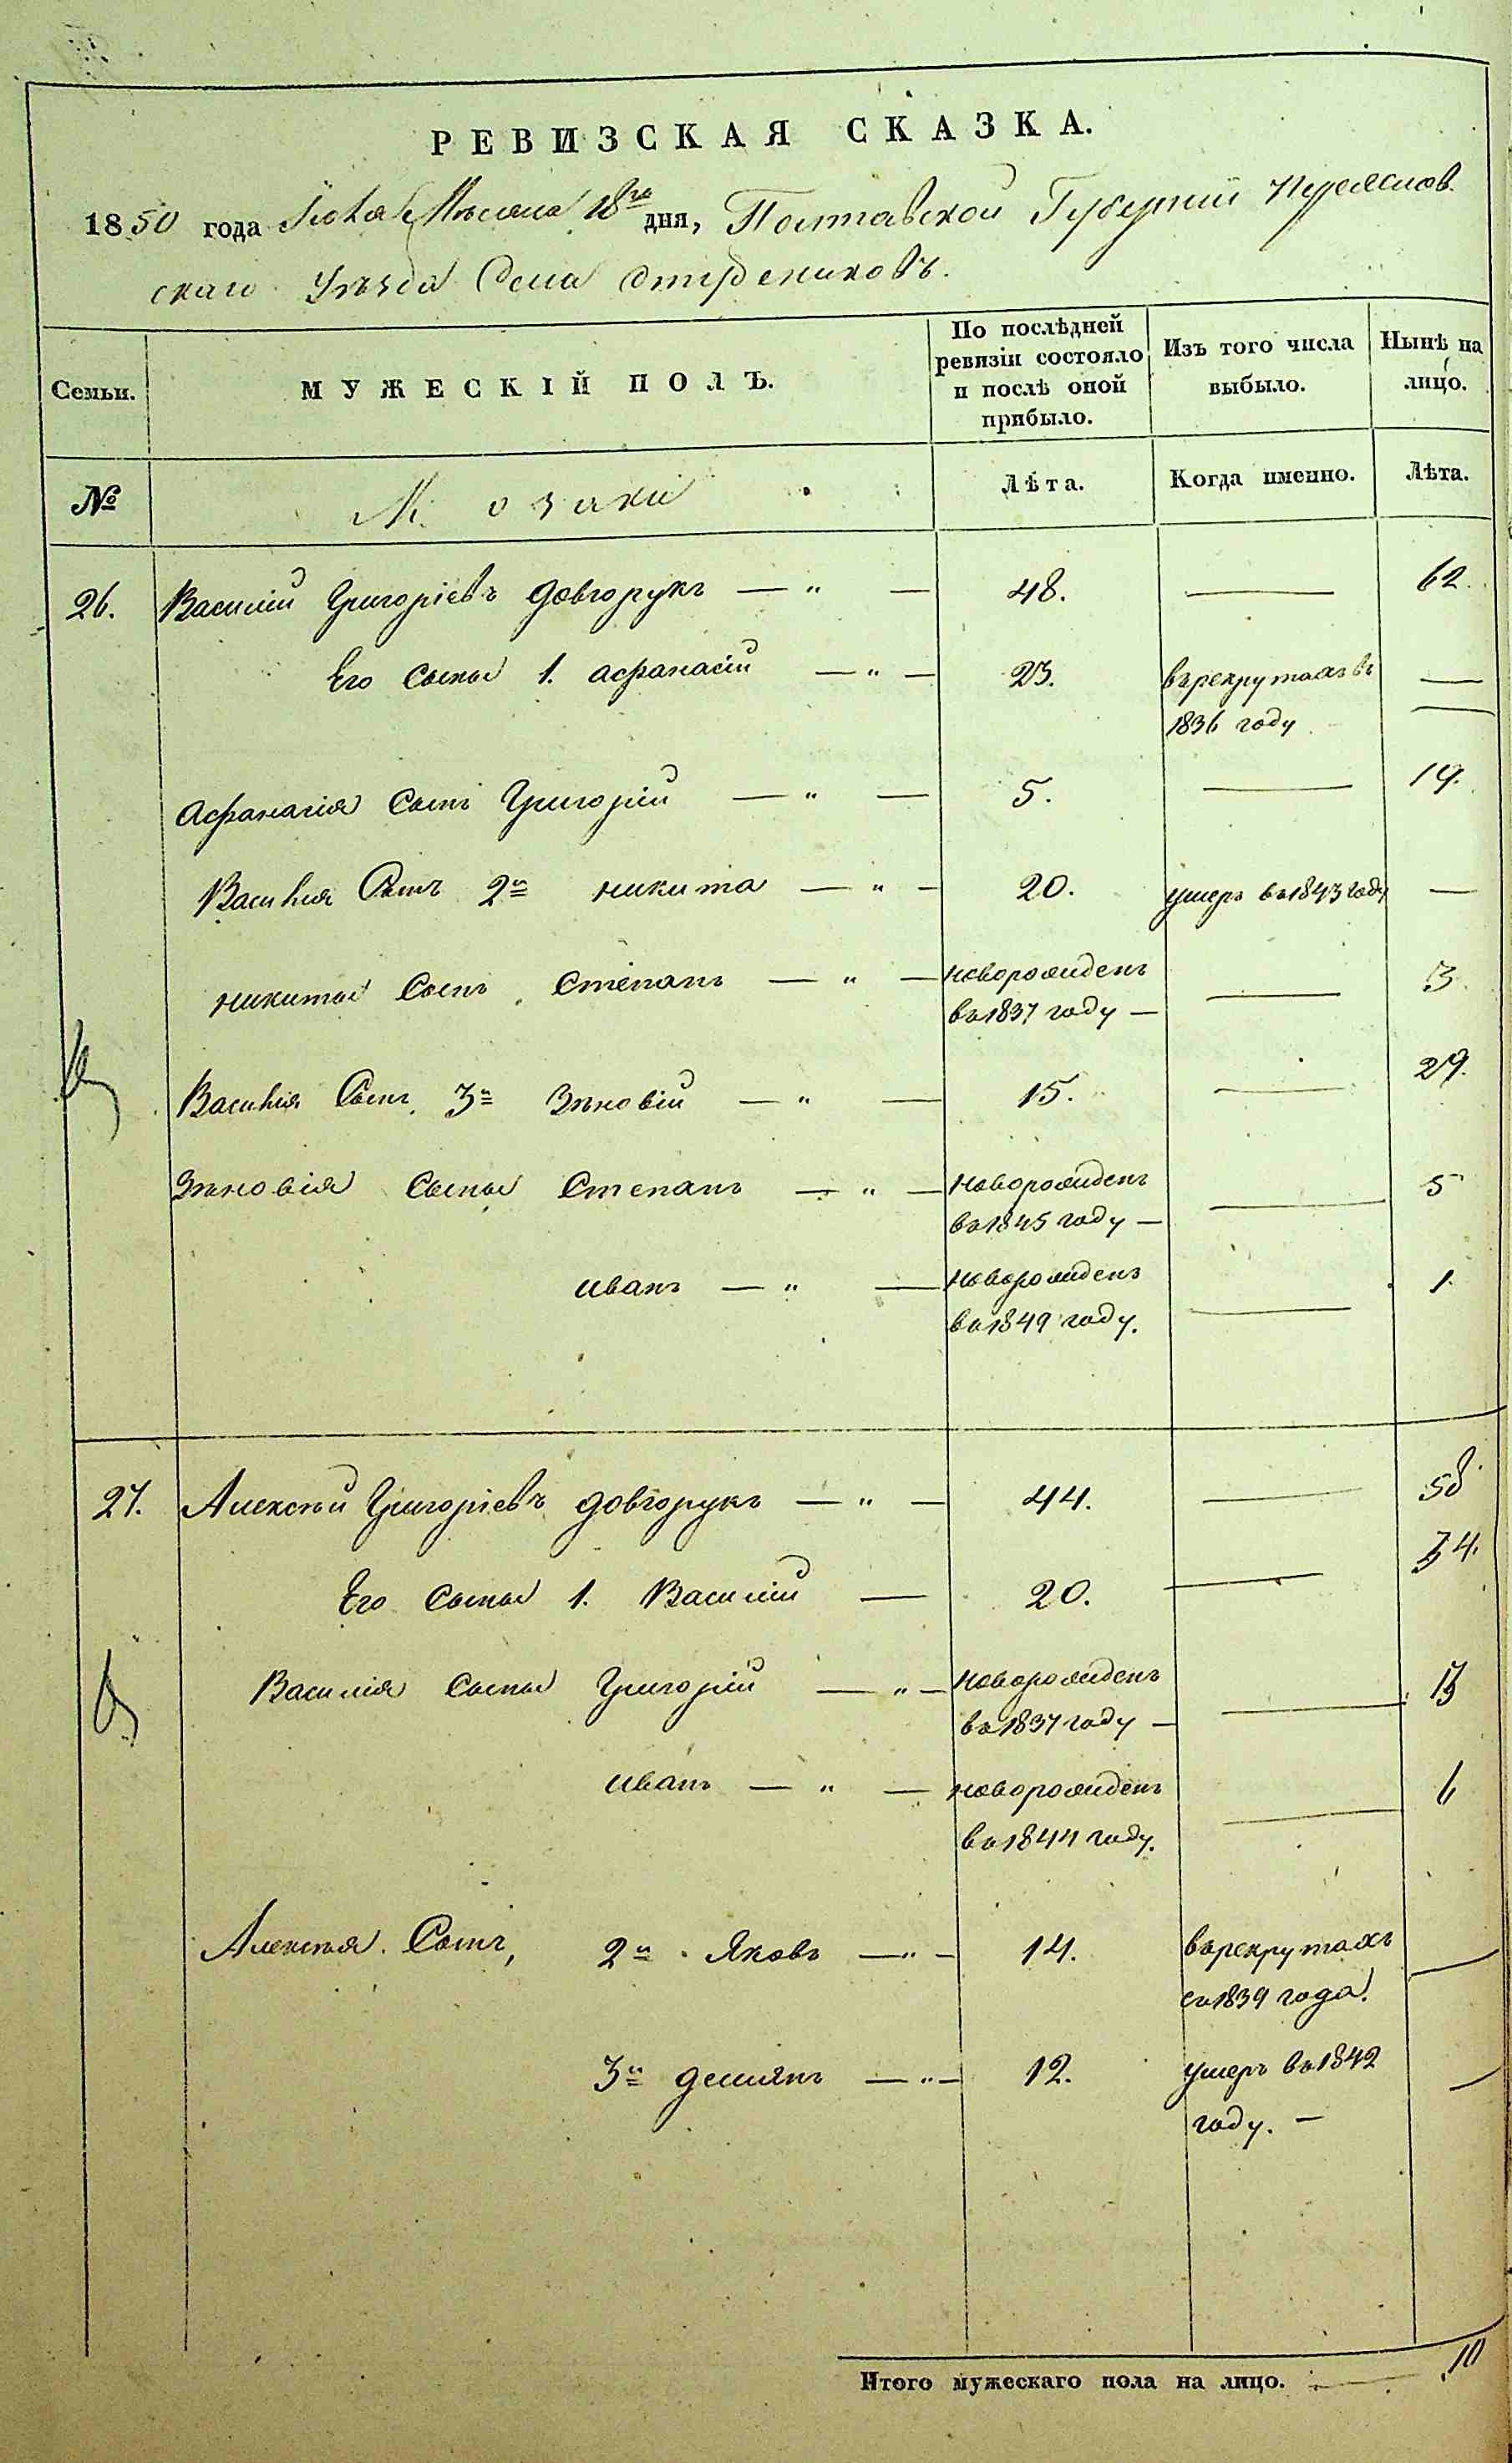 РЕВИЗСКАЯ СКАЗКА.
1850 года Мѣсяца 18го дня, Полтавской Губерніи Переяслов
скаго Уѣзда Села Стрениковъ.
Семьи.
МУЖЕСКІЙ ПОЛЪ.
По послѣдней ревизіи состояло и послѣ оной прибыло.
Изъ того числа выбыло.
Нынѣ на лицо.
№
Козаки
Лѣта.
Когда именно.
Лѣта.
26. Василій Григоріевъ Довгорукъ — " — 48. — 62.
Его Сыны 1. Афанасій — " — 23. въ рекрутахъ въ —
1836 году
Афанасія Сынъ Григорій — " — 5. — 19.
Василія Сынъ 2й Никита — " — 20. умеръ въ 1843 году —
Никиты Сынъ Степанъ — " — новорожденъ — 3
въ 1837 году —
Василія Сынъ 3й Зѣновій — " — 15. — 29.
Зѣновія Сыны Степанъ — " — новорожденъ — 5
въ 1845 году —
Иванъ — " — новорожденъ — 1
въ 1849 году.
27. Алексѣй Григоріевъ Довгорукъ — " — 44. — 58
Его Сыны 1. Василій — 20. — 34.
Василія Сыны Григорій — " — новорожденъ — 13
въ 1837 году —
Иванъ — " — новорожденъ — 6
въ 1844 году.
Алексѣя Сынъ, 2й Яковъ — " — 14. въ рекрутахъ —
съ 1839 года.
3й Деміянъ — " — 12. умеръ въ 1842 —
году. —
Итого мужескаго пола на лицо. — 10